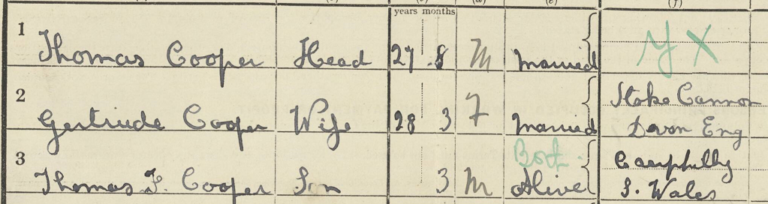 years months
1 Thomas Cooper Head 27 8 M Married Y X
2 Gertrude Cooper Wife 28 3 F Married Stoke Cannon
Devon Eng
3 Thomas F. Cooper Son 3 M Both Alive Caerphilly
S. Wales